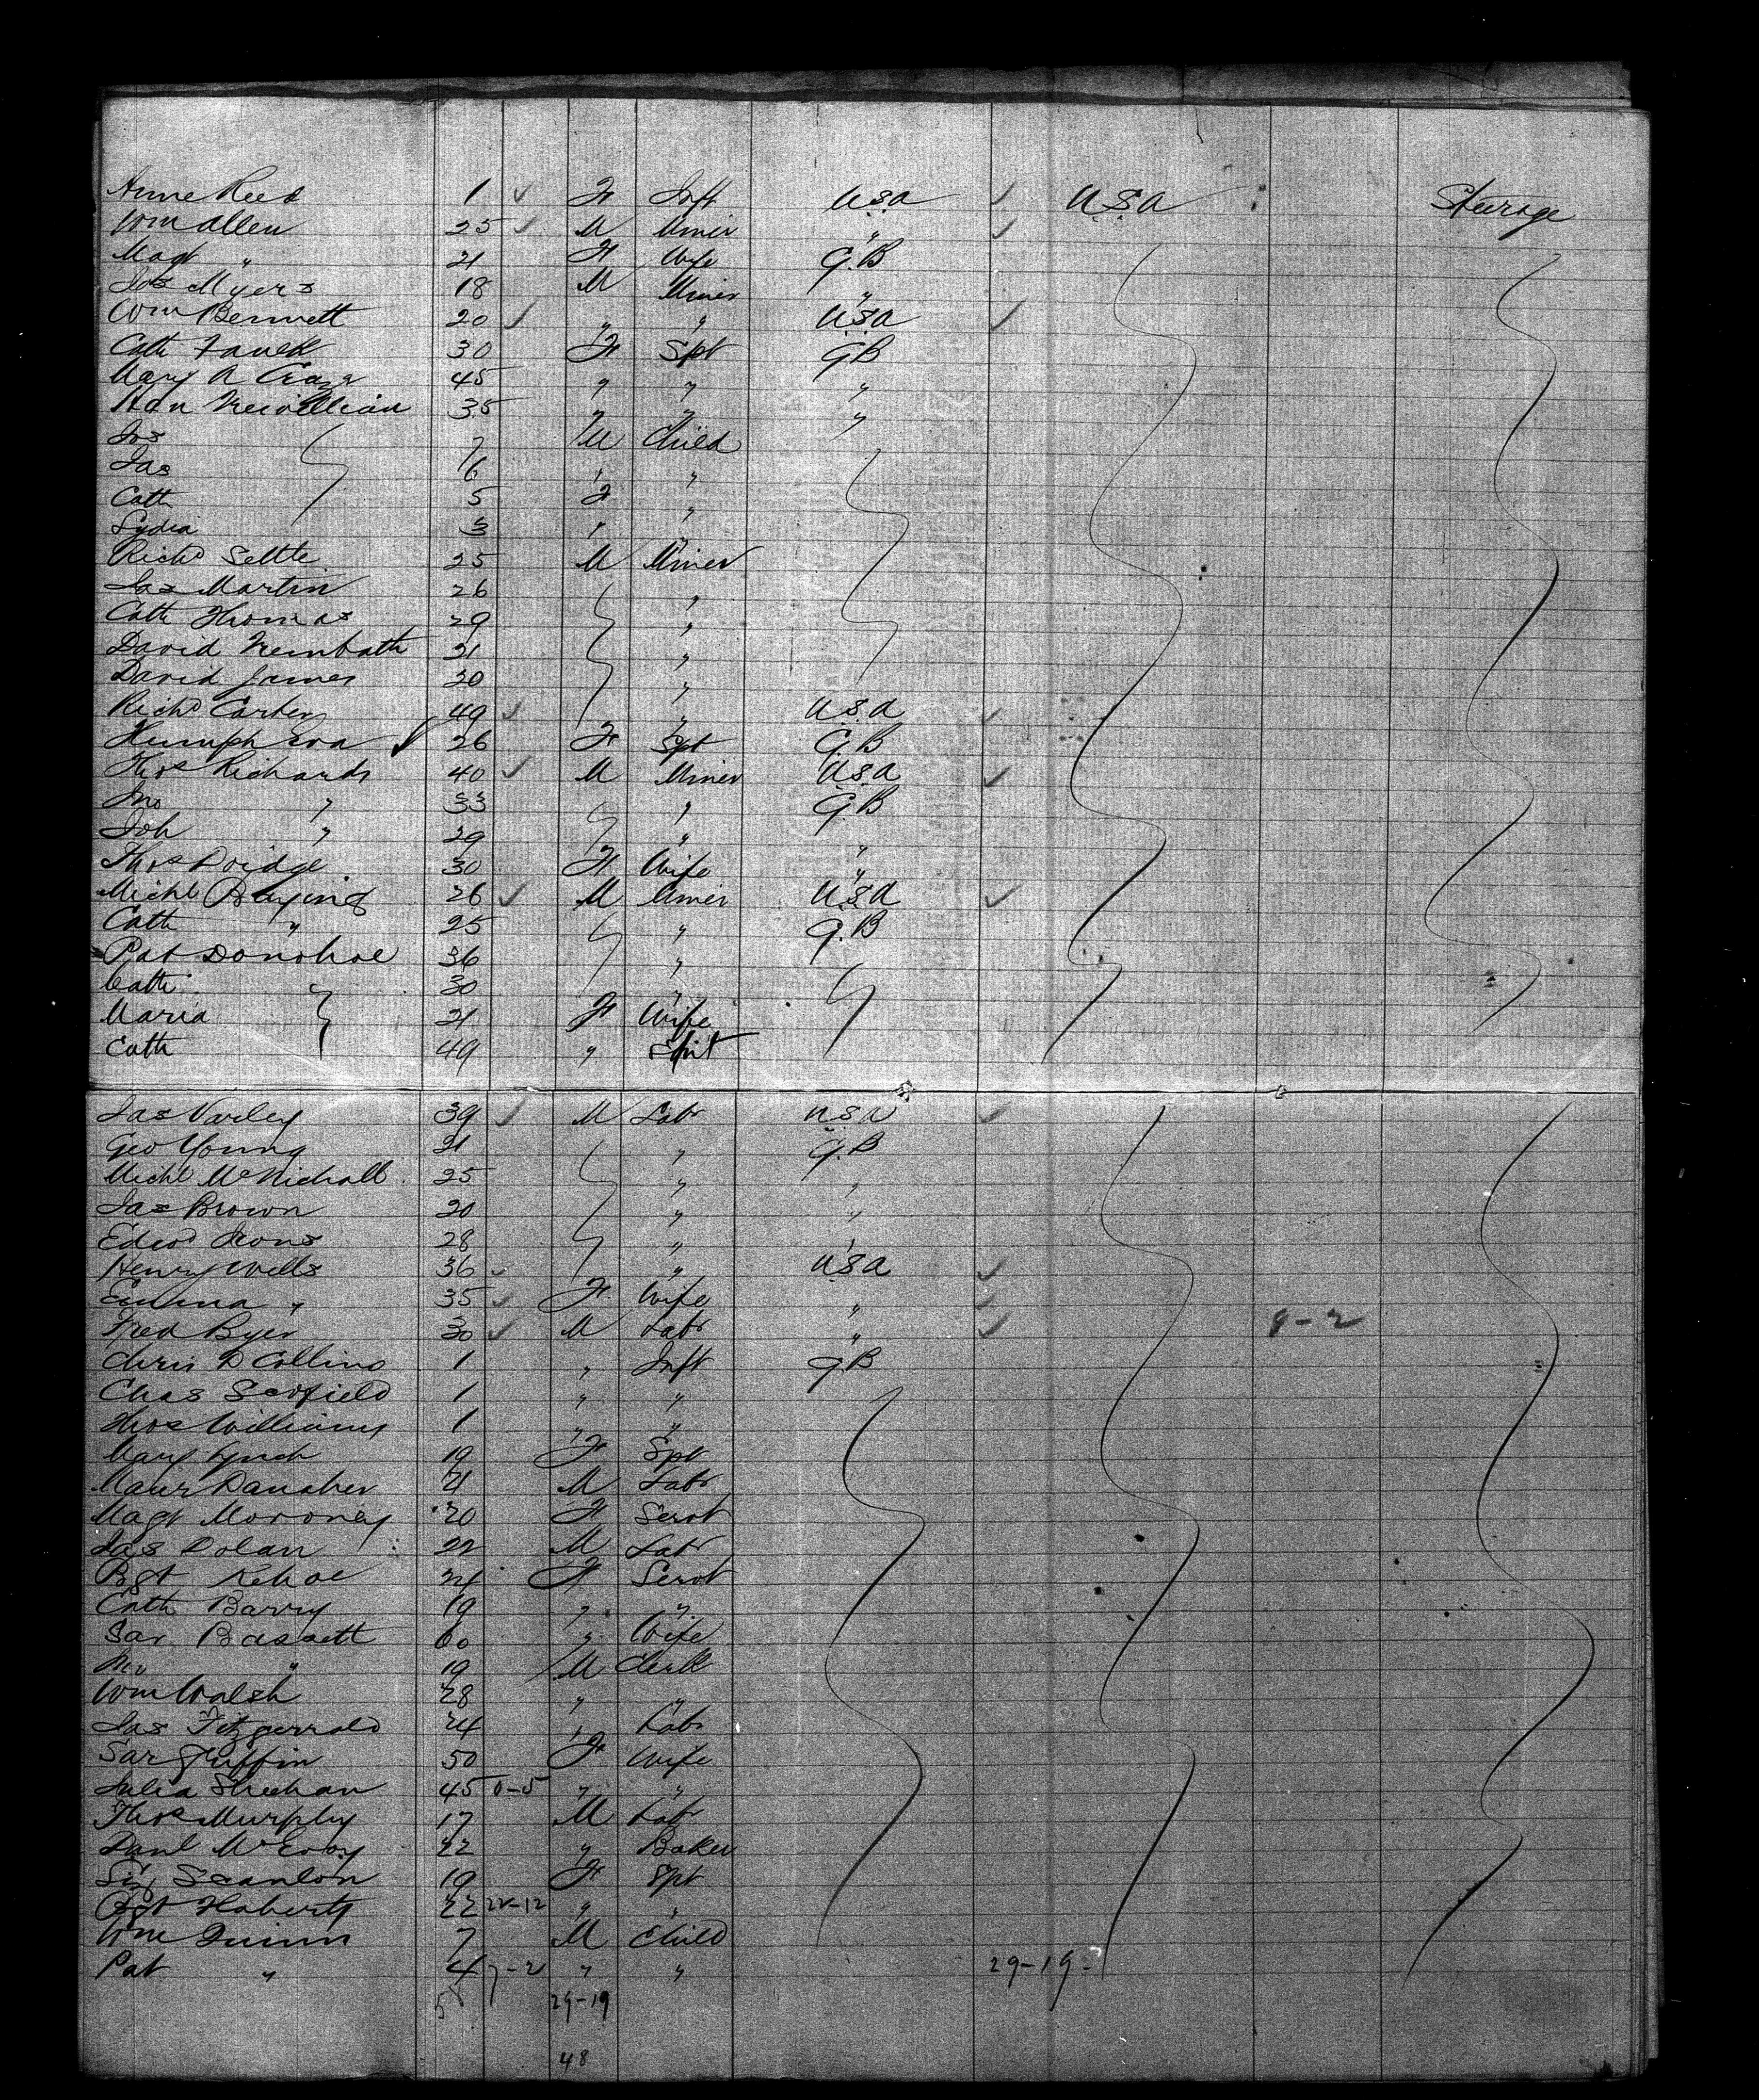 Anne Reed 1 ✓ F Inft USA ✓ USA Steerage
Wm Allen 25 ✓ M Miner " ✓
Magt " 21 F Wife G.B
Jos Myers 18 M Miner "
Wm Bennett 20 ✓ " " USA ✓
Cath 30 F Spt GB
Mary A 45 " " "
35 " " "
Jos 7 M Child
Jas 6 " "
Cath 5 F "
Lydia 3 " "
Richd Settle 25 M Miner
Jas Martin 26 "
Cath Thomas 29 "
David Trembath 21 "
David James 20 "
Richd Carter 49 ✓ " USA ✓
Humph Eva ✓ 26 F Spt G.B
Thos Richards 40 ✓ M Miner USA ✓
Jno " 33 " G.B
Joh " 29 " "
Thos Doidge 30 F Wife "
Michl 26 ✓ M Miner USA ✓
Cath " 25 " G.B
Pat Donohoe 36 "
Cath 30 "
Maria 21 F Wife
Cath 49 " Spt
Jas Varley 39 ✓ M Labr USA ✓
Geo Young 21 " G.B
Michl McNichall 25 " "
Jas Brown 20 " "
Edwd Irons 28 " "
Henry Wells 36 ✓ " USA ✓
Emma " 35 ✓ F Wife " ✓
Fred Byer 30 ✓ M Labr " ✓ 9-2
Chris D Collins 1 " Inft GB
Chas Scofield 1 " "
Thos Williams 1 " "
Mary Lynch 19 F Spt
Maur Danaher 21 M Labr
Magt Moroney 20 F Servt
Jas Dolan 22 M Labr
Bgt Kehoe 24 F Servt
Cath Barry 19 " "
Sar Bassett 60 " Wife
Jno " 19 M Clerk
Wm Walsh 28 " "
Jas Fitzgerrald 24 " Labr
Sar Griffin 50 F Wife
Julia Sheehan 45 0-5 " "
Thos Murphy 17 M Labr
Danl McEvoy 22 " Baker
Scanlon 19 F Spt
Bgt Flaherty 22 22-12 " "
Wm Quinn 7 M Child
Pat " 4 7-2 " " 29-19
5 29-19
48